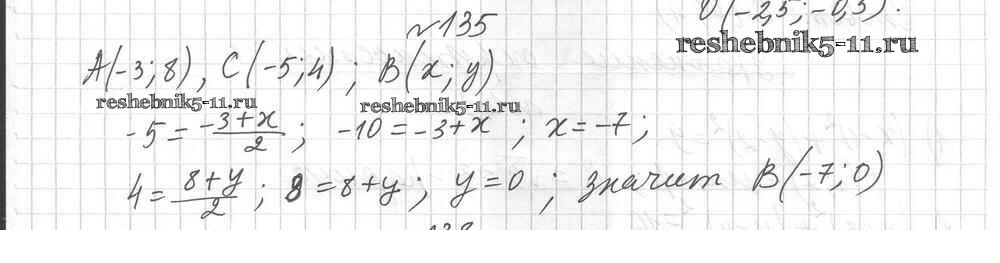 O(-2,5; -0,5).
№135
reshebnik5-11.ru
A(-3; 8), C(-5; 4); B(x; y)
reshebnik5-11.ru reshebnik5-11.ru
-5 = \frac{-3+x}{2}; -10 = -3+x; x = -7;
4 = \frac{8+y}{2}; 8 = 8+y; y = 0; значит B(-7; 0)